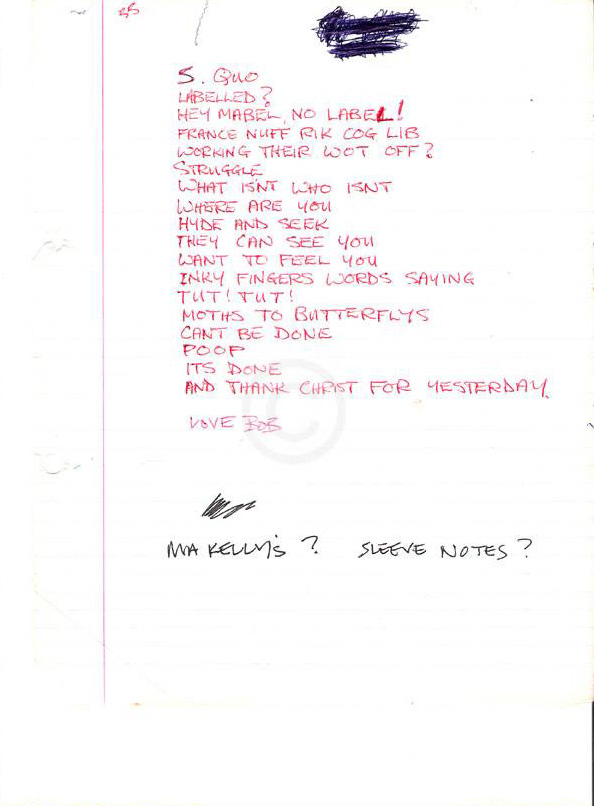 S. QUO
LABELLED?
HEY MABEL, NO LABEL!
FRANCE NUFF RIK COG LIB
WORKING THEIR WOT OFF?
STRUGGLE
WHAT ISNT WHO ISNT
WHERE ARE YOU
HYDE AND SEEK
THEY CAN SEE YOU
WANT TO FEEL YOU
INKY FINGERS WORDS SAYING
TUT! TUT!
MOTHS TO BUTTERFLYS
CANT BE DONE
POOP
ITS DONE
AND THANK CHRIST FOR YESTERDAY.
LOVE BOB
©
MA KELLY'S? SLEEVE NOTES?